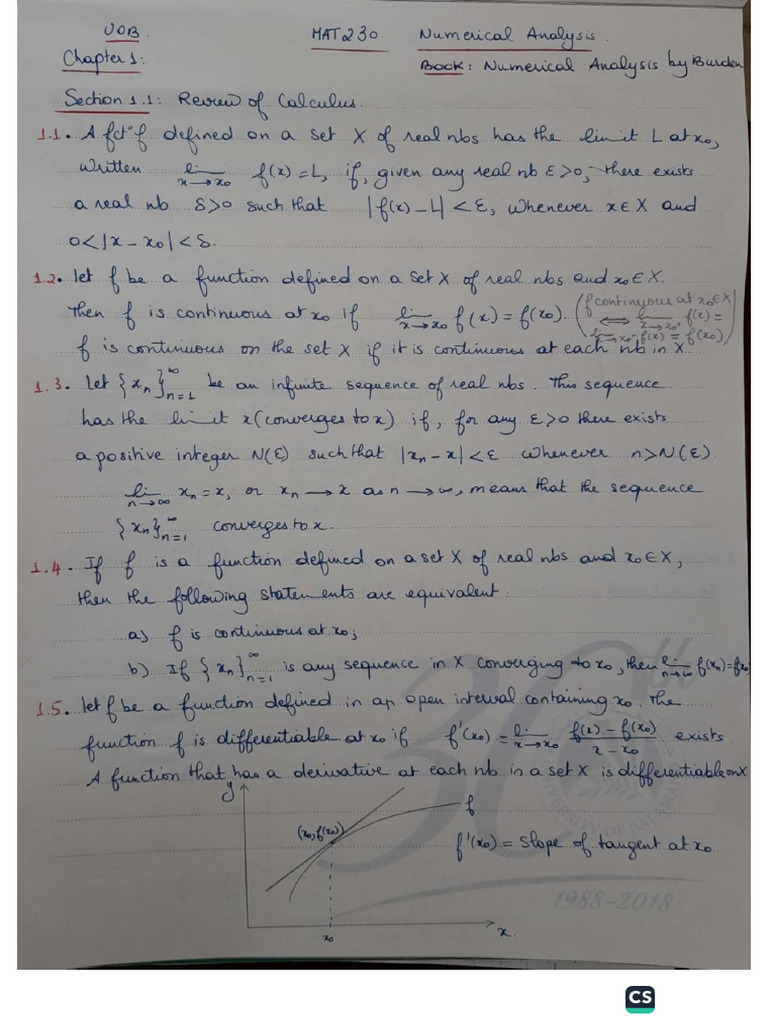 UOB MAT230 Numerical Analysis.
Chapter 1: Book: Numerical Analysis by Burden
Section 1.1: Review of Calculus.
1.1. A fct° f defined on a set X of real nbs has the limit L at x₀,
written lim x→x₀ f(x)=L, if, given any real nb ε>0, there exists
a real nb δ>0 such that |f(x)-L|<ε, whenever x∈X and
0<|x-x₀|<δ.
1.2. let f be a function defined on a set X of real nbs and x₀∈X.
Then f is continuous at x₀ if lim x→x₀ f(x)=f(x₀). (f continuous at x₀∈X ⟺ lim x→x₀⁺ f(x) = lim x→x₀⁻ f(x) = f(x₀))
f is continuous on the set X if it is continuous at each nb in X.
1.3. Let {xₙ}ₙ₌₁^∞ be an infinite sequence of real nbs. This sequence
has the limit x (converges to x) if, for any ε>0 there exists
a positive integer N(ε) such that |xₙ-x|<ε whenever n>N(ε).
lim n→∞ xₙ=x, or xₙ→x as n→∞, means that the sequence
{xₙ}ₙ₌₁^∞ converges to x.
1.4. If f is a function defined on a set X of real nbs and x₀∈X,
then the following statements are equivalent:
a) f is continuous at x₀;
b) If {xₙ}ₙ₌₁^∞ is any sequence in X converging to x₀, then lim n→∞ f(xₙ)=f(x₀)
1.5. let f be a function defined in an open interval containing x₀. The
function f is differentiable at x₀ if f'(x₀) = lim x→x₀ (f(x)-f(x₀))/(x-x₀) exists.
A function that has a derivative at each nb in a set X is differentiable on X
y
f
(x₀,f(x₀))
f'(x₀) = slope of tangent at x₀
x₀
x.
30th
1988-2018
CS